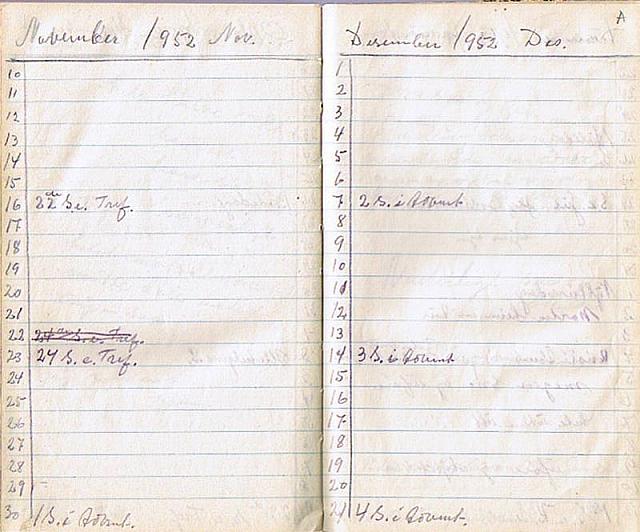 November 1952 Nov.
10
11
12
13
14
15
16 22de S. e. Tref.
17
18
19
20
21
22
23 24 S. e. Tref.
24
25
26
27
28
29
30 1 S. i Advent.
A
Desember 1952 Des.
1
2
3
4
5
6
7 2 S. i Advent
8
9
10
11
12
13
14 3 S. i Advent
15
16
17
18
19
20
21 4 S. i Advent.